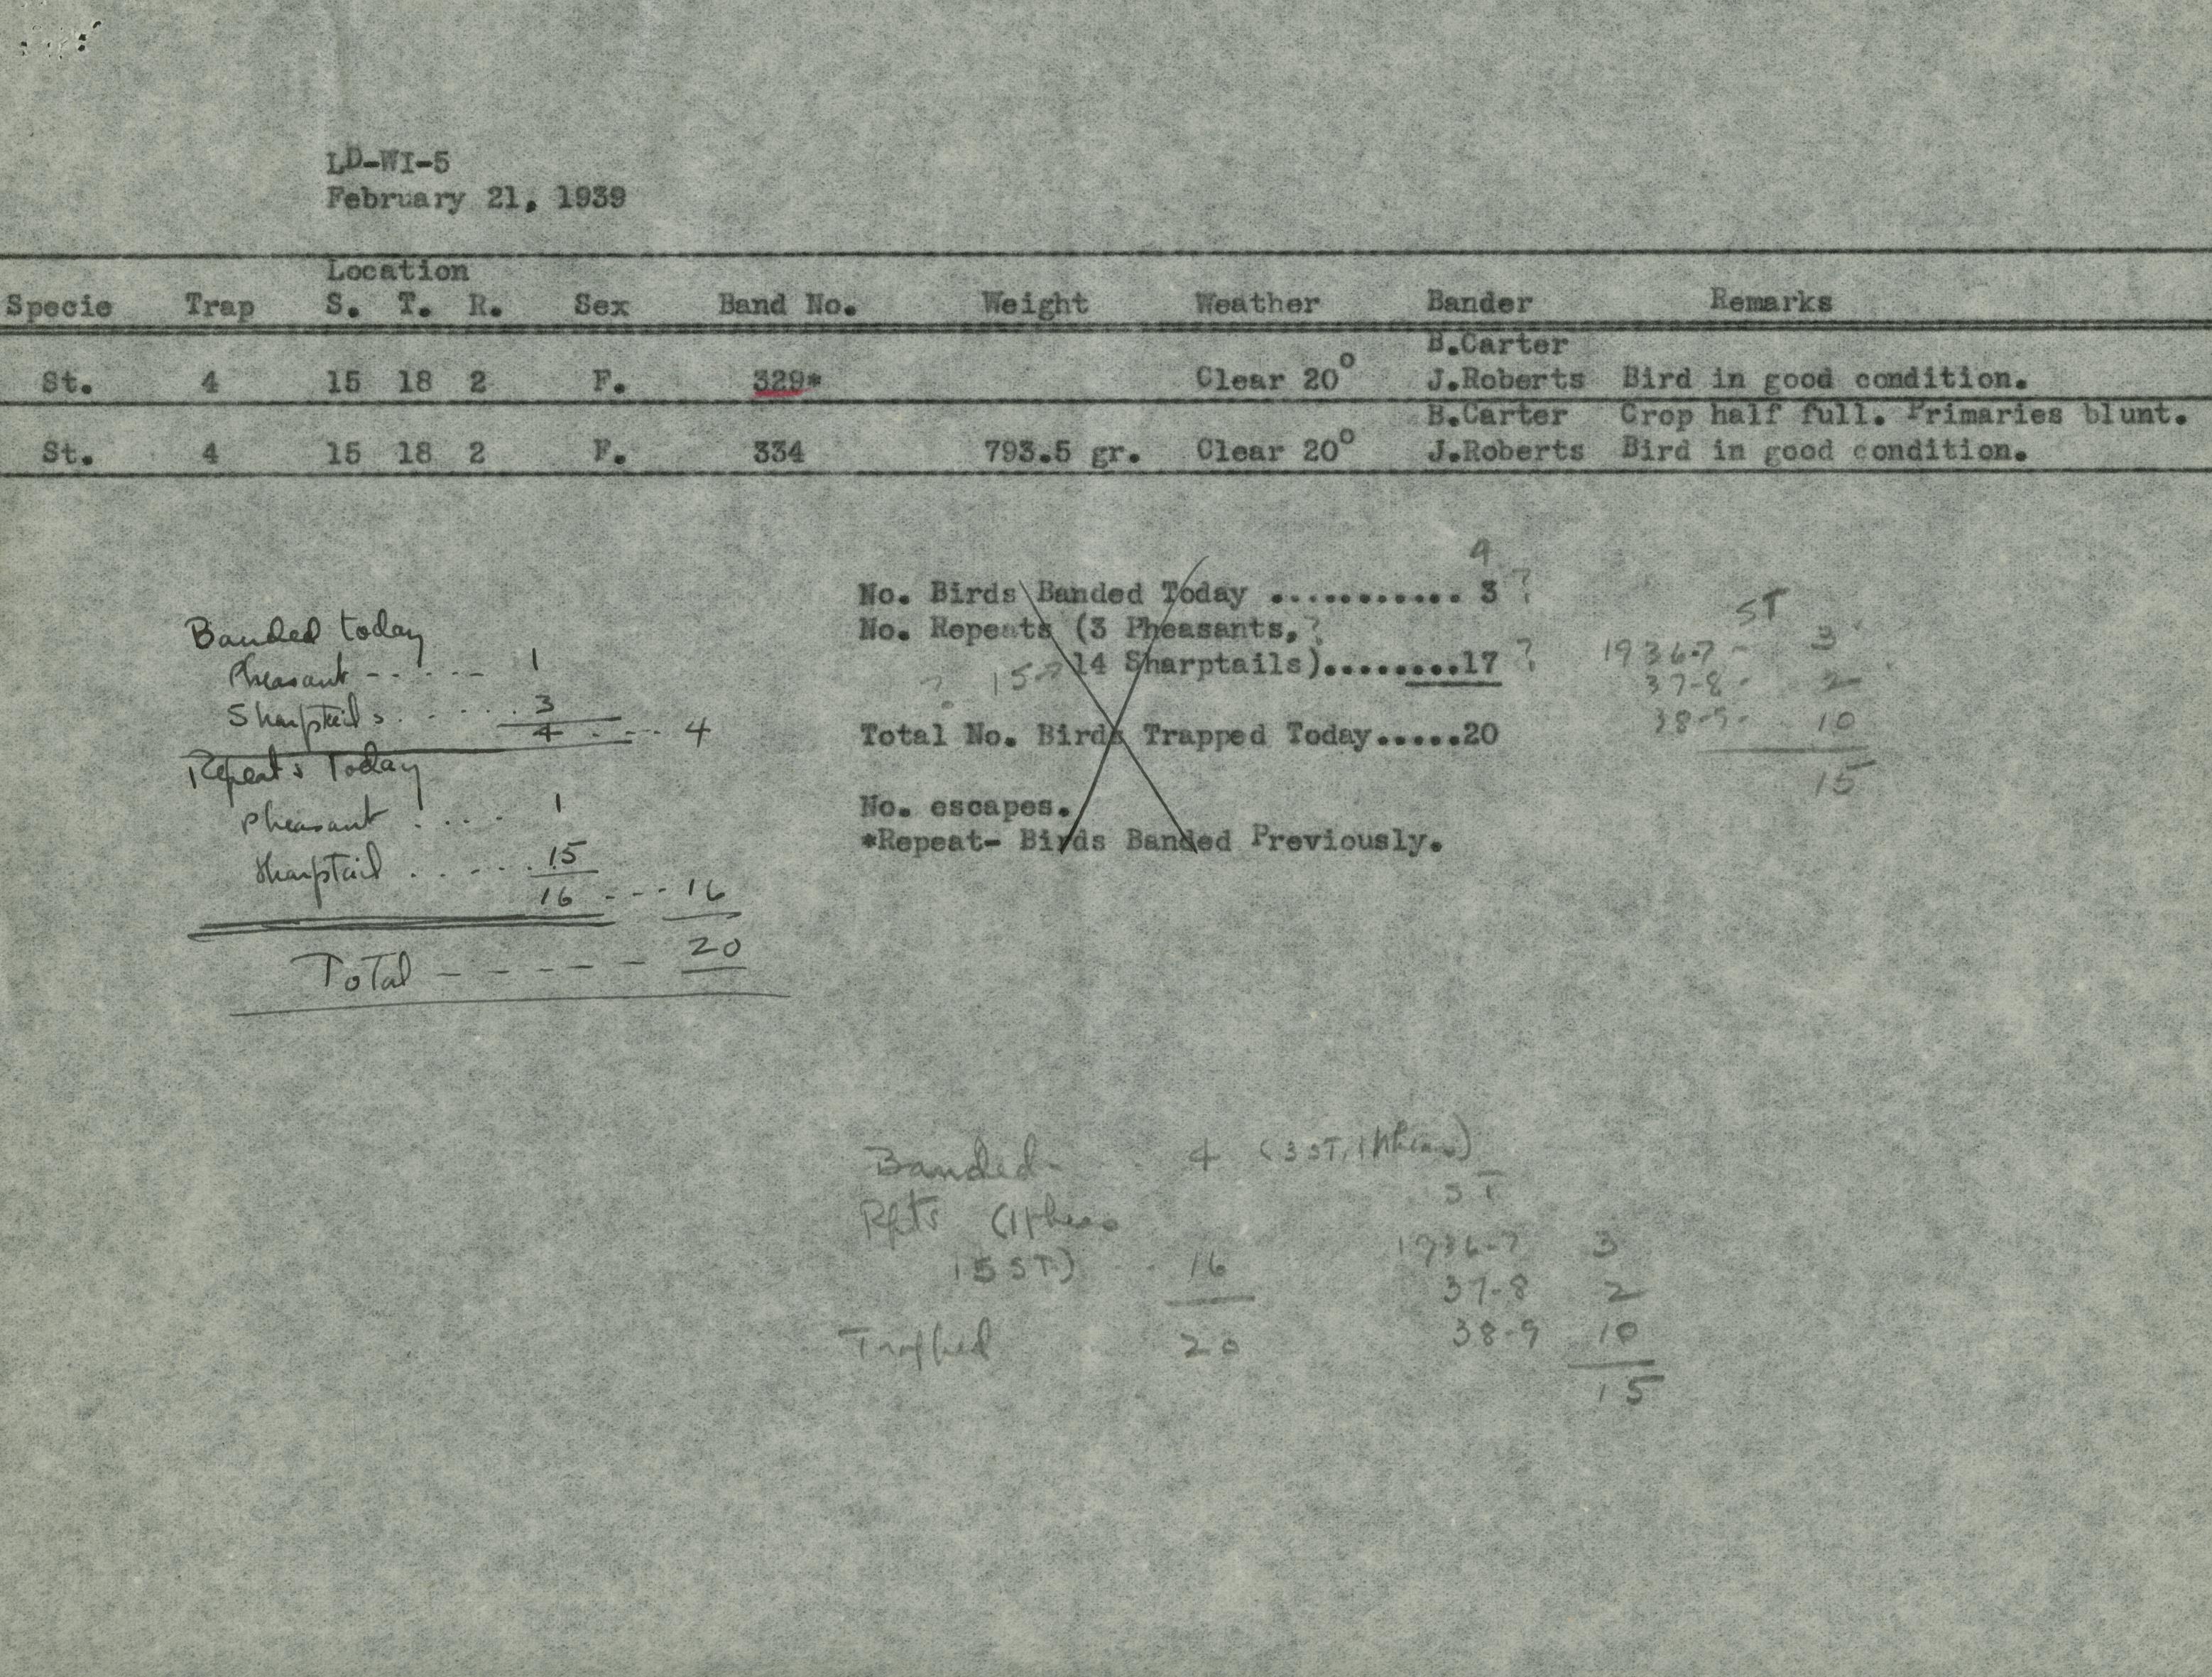 LD-WI-5
February 21, 1939
Location
Specie Trap S. T. R. Sex Band No. Weight Weather Bander Remarks
B.Carter
St. 4 15 18 2 F. 329* Clear 20° J.Roberts Bird in good condition.
B.Carter Crop half full. Primaries blunt.
St. 4 15 18 2 F. 334 793.5 gr. Clear 20° J.Roberts Bird in good condition.
Banded today
Pheasant - - . - - 1
Sharptails . - . . . . 3
4 . - - - 4
Repeats Today
Pheasant . . . - 1
Sharptail . . - . . . 15
16 - - - 16
20
Total - - - - - -
4
No. Birds Banded Today ........... 3 ?
No. Repeats (3 Pheasants, ?
? 15? 14 Sharptails)........17 ?
Total No. Birds Trapped Today.....20
No. escapes.
*Repeat- Birds Banded Previously.
ST
1936-7 - 3
37-8 - 2
38-9 - 10
15
Banded - 4 (3 ST, 1 Pheas)
Rpts (1 Pheas
15 ST) - - 16
Trapped 20
ST
1936-7 3
37-8 2
38-9 10
15